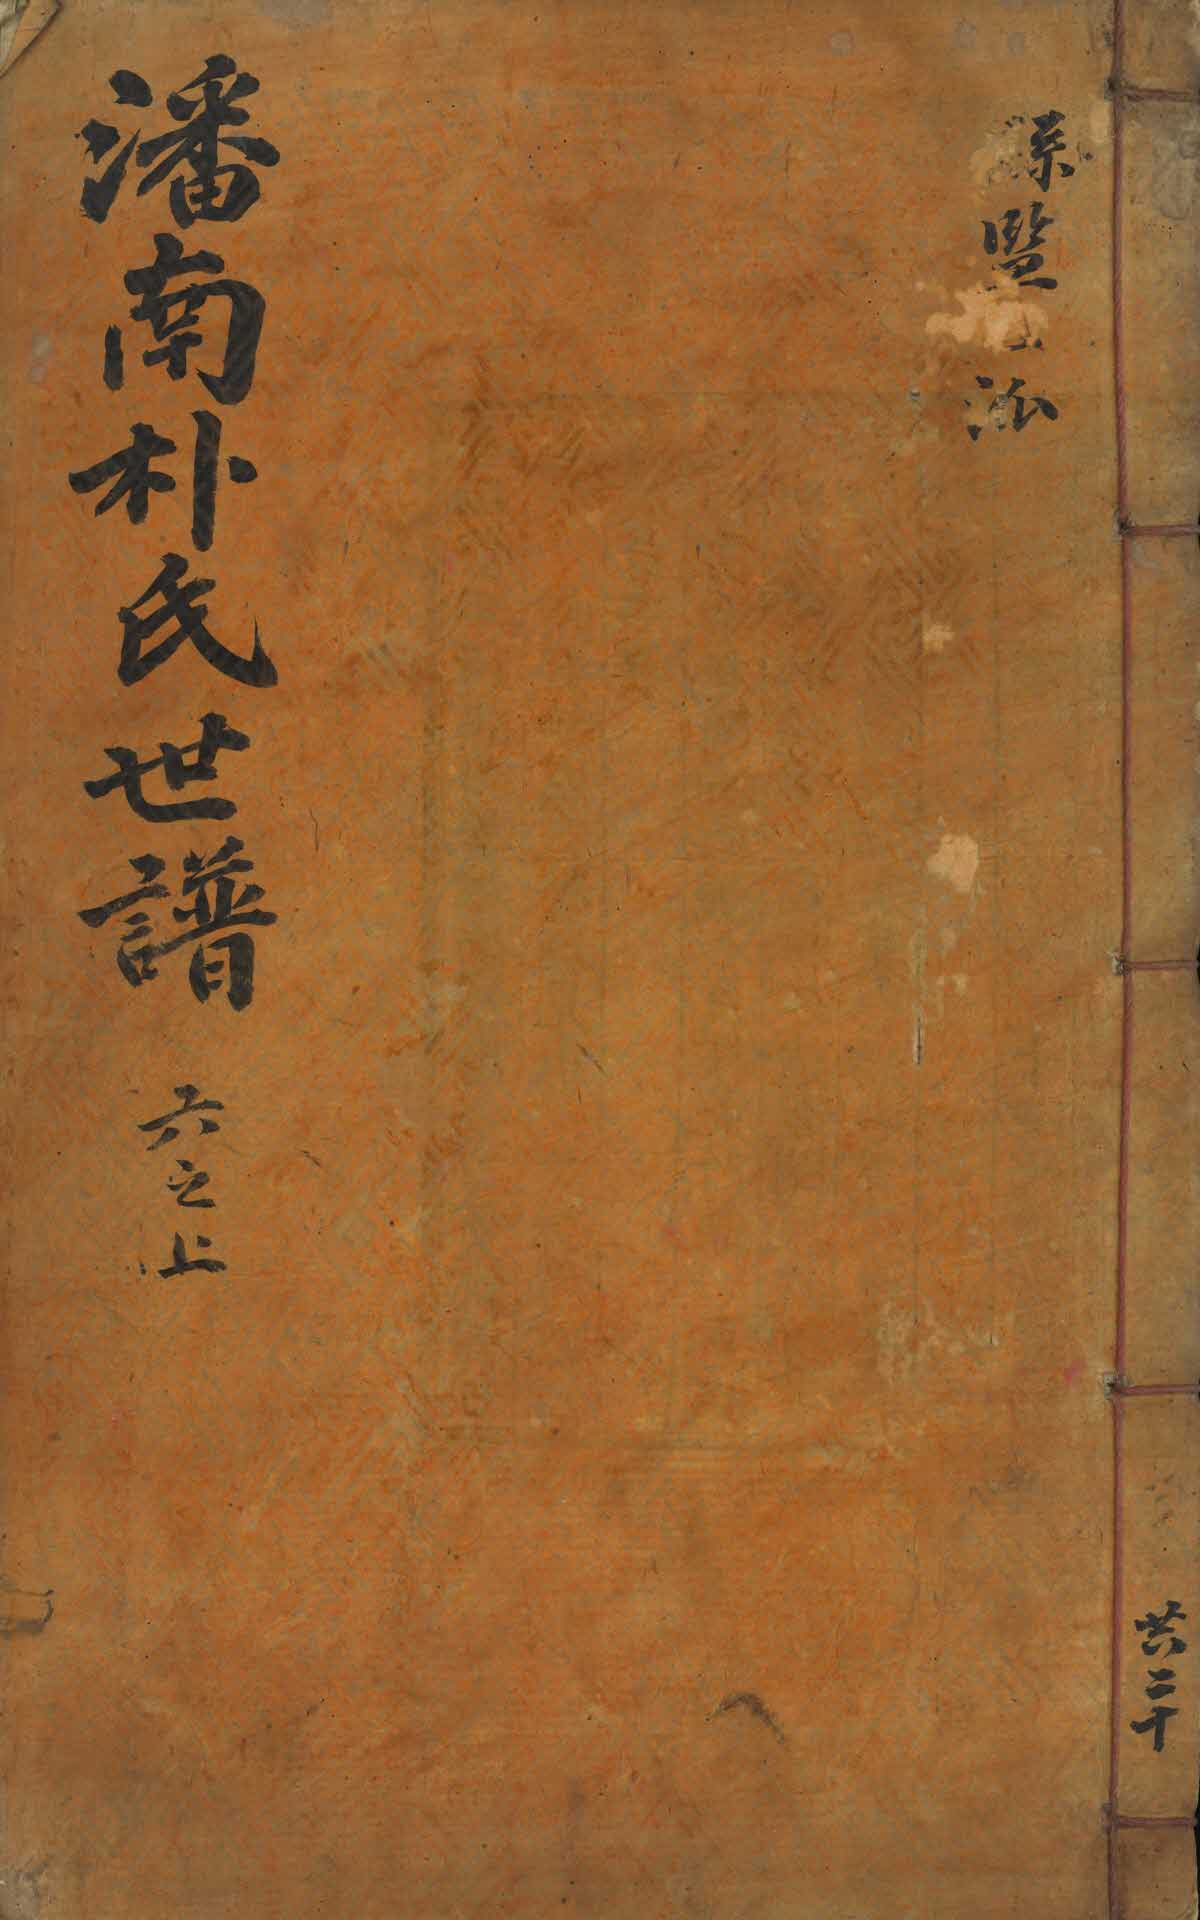 共二十
縣監 派
潘南朴氏世譜 六之上